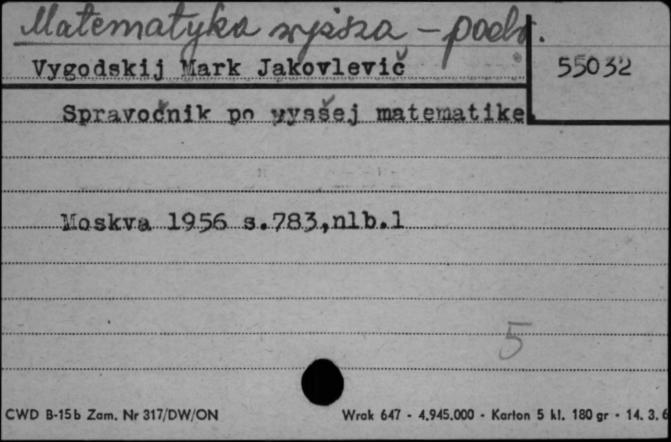 Matematyka wyższa - podr.
Vygodskij Mark Jakovlevič
55032
Spravočnik po vysšej matematike
Moskva 1956 s.783,nlb.1
5
CWD B-15b Zam. Nr 317/DW/ON
Wrak 647 - 4.945.000 - Karton 5 kl. 180 gr - 14. 3. 6